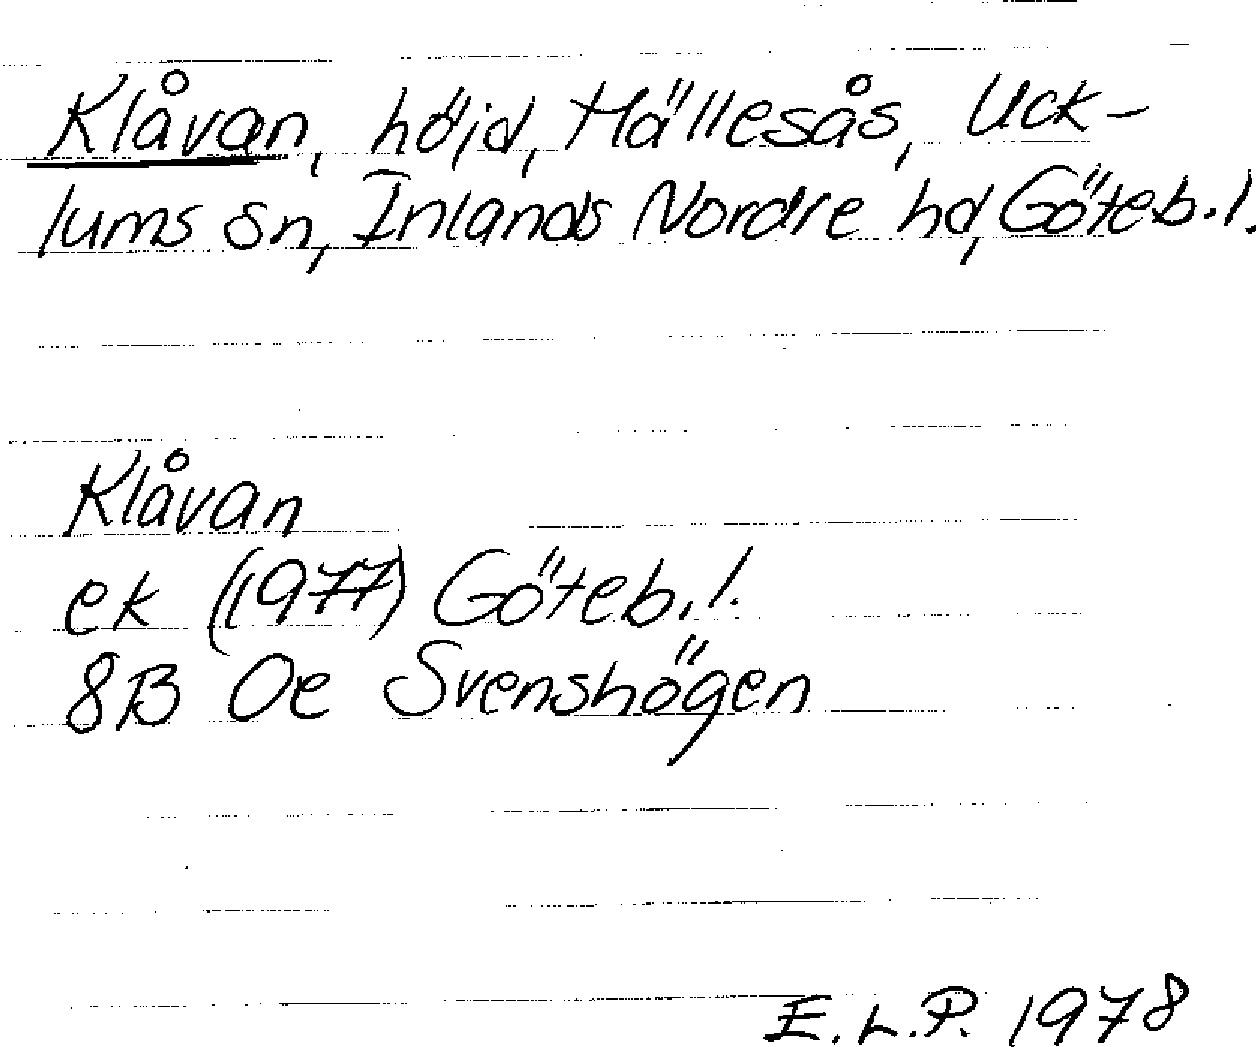 Klåvan, höjd, Hällesås, Uck-
lums sn, Inlands Nordre hd, Göteb. l.
Klåvan
ek (1977) Göteb. l.
8B Oe Svenshögen
E.L.P. 1978